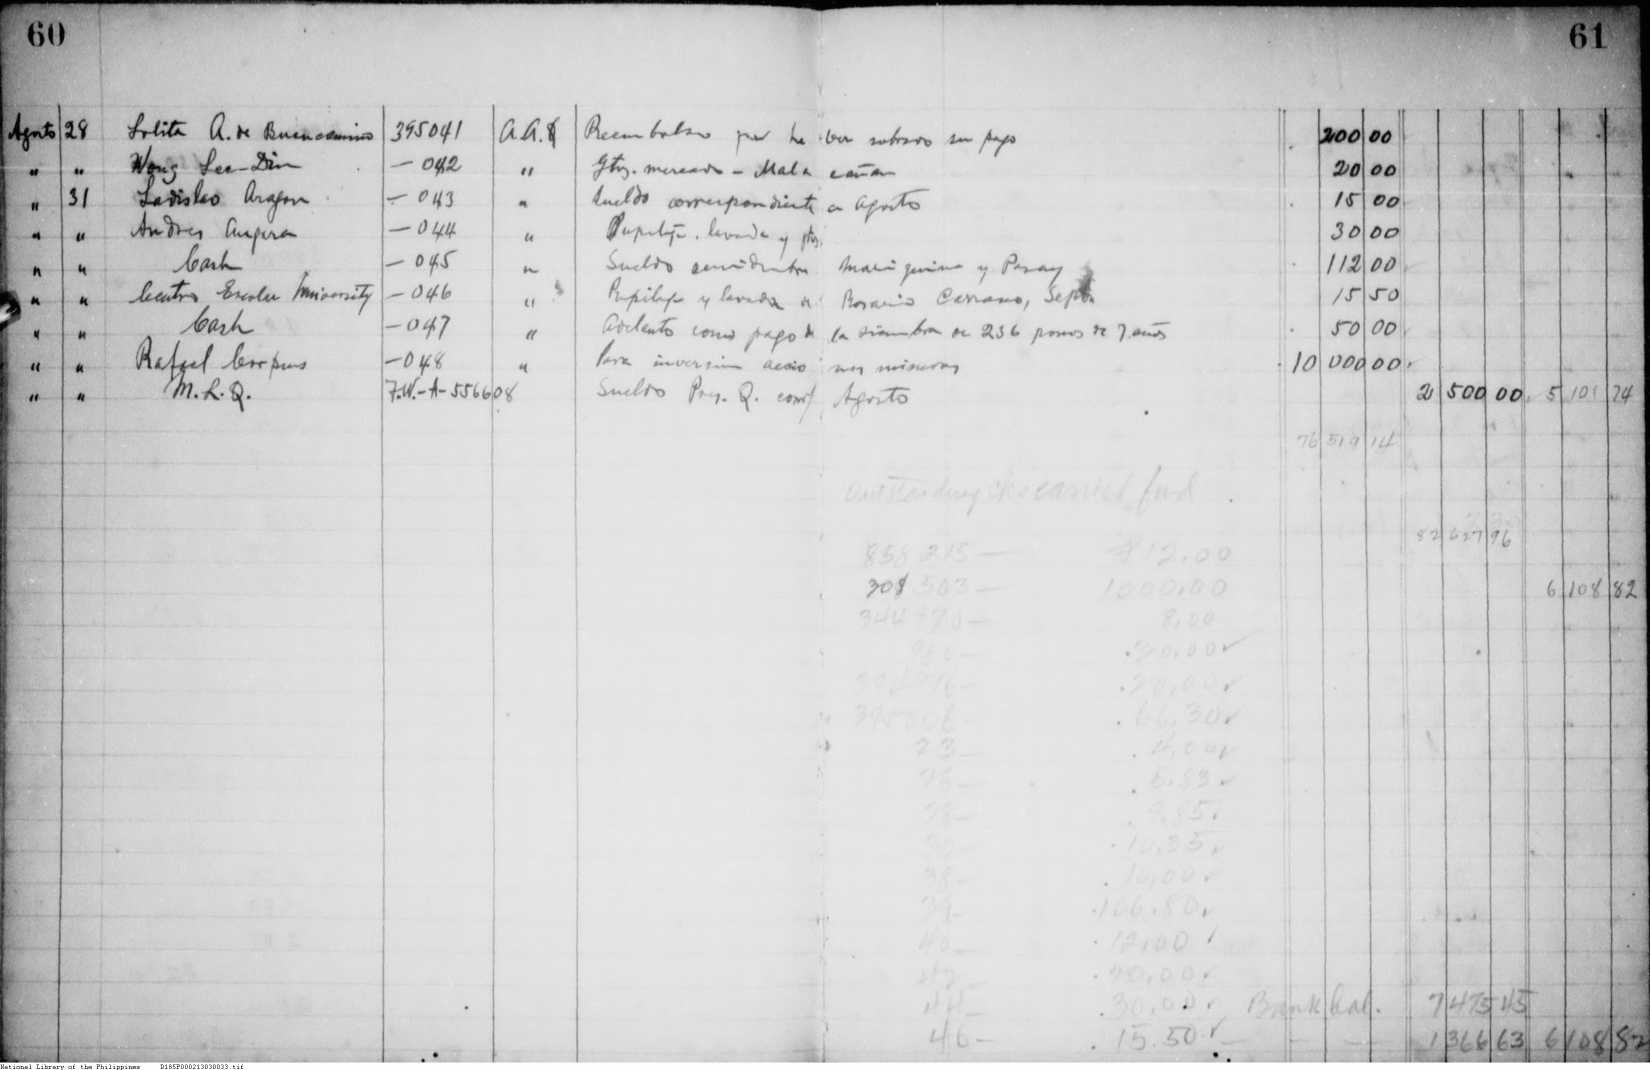 60 61
Agosto 28 Lolita A. de Buencamino 395041 A.A.Q Reembolso por haber sobrado su pago 200 00
" " Wong See-Din — 042 " Gtos. mercado - Malacañan 20 00
" 31 Ladislao Aragon — 043 " Sueldo correspondiente a Agosto 15 00
" " Andres — 044 " Pupilaje, lavada y gtos. 30 00
" " Cash — 045 " Sueldo Mariquina y Pasay 112 00
" " Centro Escolar University — 046 " Pupilaje y lavada de Rosario Carrasco, Sept. 15 50
" " Cash — 047 " Adelanto como pago de la siembra de 236 ponos de 7 años 50 00
" " Rafael Corpus — 048 " Para inversion acciones mineras 10 000 00
" " M.L.Q. F.W.-A-556608 Sueldo Pres. Q. corresp. Agosto 2 500 00 5 101 74
76 519 14
Outstanding cks carried ford
82 627 96
858 215 — 12.00
301 503 — 1000.00 6 108 82
344 770 — 8.00
20.00
20.00
395006 — 66.30
23 — 2.00
26 — 6.83
9.85
10.35
38 — 10.00
39 — 106.80
40 — 12.00
42 — 20.00
44 — 30.00 Bank bal. 7 475 45
46 — 15.50 1 366 63 6 108 82
National Library of the Philippines D185P000213030033.tif